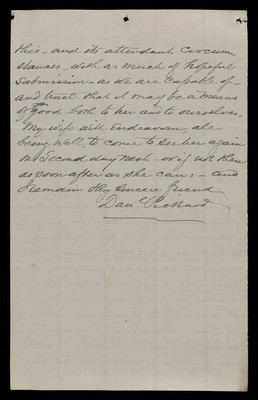 this - and its attendant circum
stances - with as much of hopeful
submission - as we are capable of -
and trust that it may be a means
of good both to her and to ourselves.
My wife will endeavour, all
being well, to come to see her again
on Second day next - or if not then
as soon after as she can : - and
I remain thy sincere friend
Dan Pickard